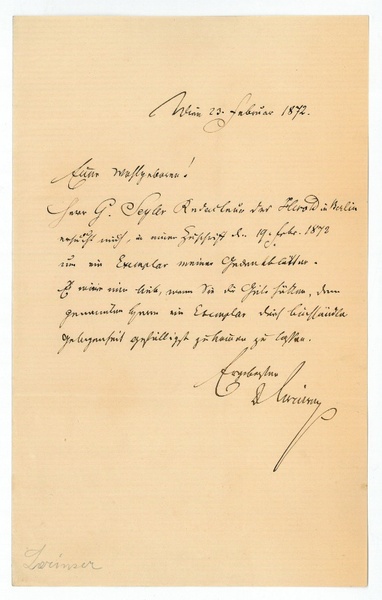 Wien 23. Februar 1872.
Euer Wohlgeboren!
Herr G. Seyler Redacteur des Herold in Berlin
ersucht mich, in einer Zuschrift dto. 19. Febr. 1872
um ein Exemplar meiner Gedenkblätter.
Es wäre mir lieb, wenn Sie die Güte hätten, dem
genannten Herrn ein Exemplar durch buchhändler
Gelegenheit gefälligst zukommen zu lassen.
Ergebenster
Dr Lorinser
Lorinser